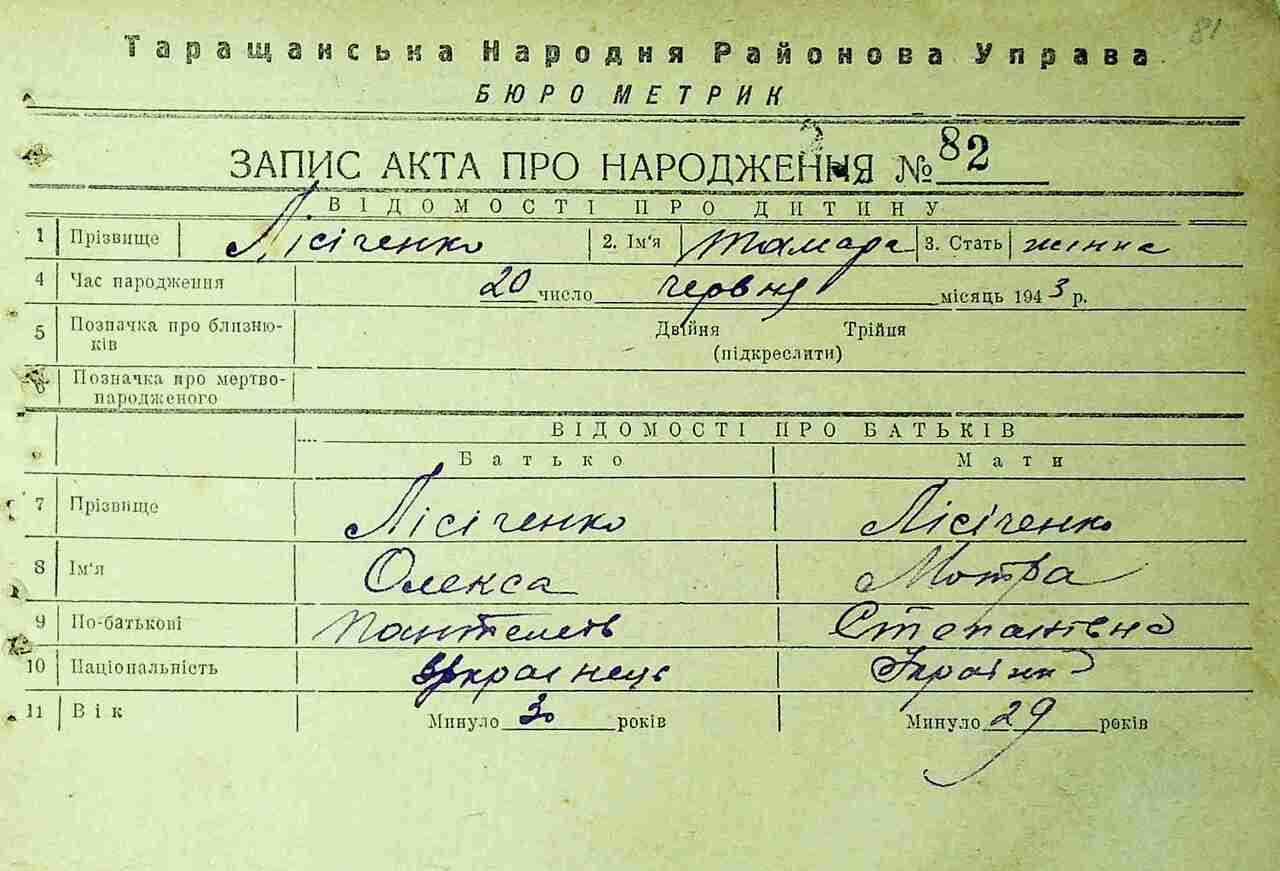 81
Таращанська Народня Районова Управа
БЮРО МЕТРИК
ЗАПИС АКТА ПРО НАРОДЖЕННЯ № 82
ВІДОМОСТІ ПРО ДИТИНУ
1 Прізвище Лісіченко 2. Ім'я Тамара 3. Стать жінка
4 Час народження 20 число червня місяць 1943 р.
5 Позначка про близню- Двійня Трійня
ків (підкреслити)
6 Позначка про мертво-
народженого
ВІДОМОСТІ ПРО БАТЬКІВ
Батько Мати
7 Прізвище Лісіченко Лісіченко
8 Ім'я Олекса Мотра
9 По-батькові Степанівна
10 Національність українець Українка
11 Вік Минуло 30 років Минуло 29 років